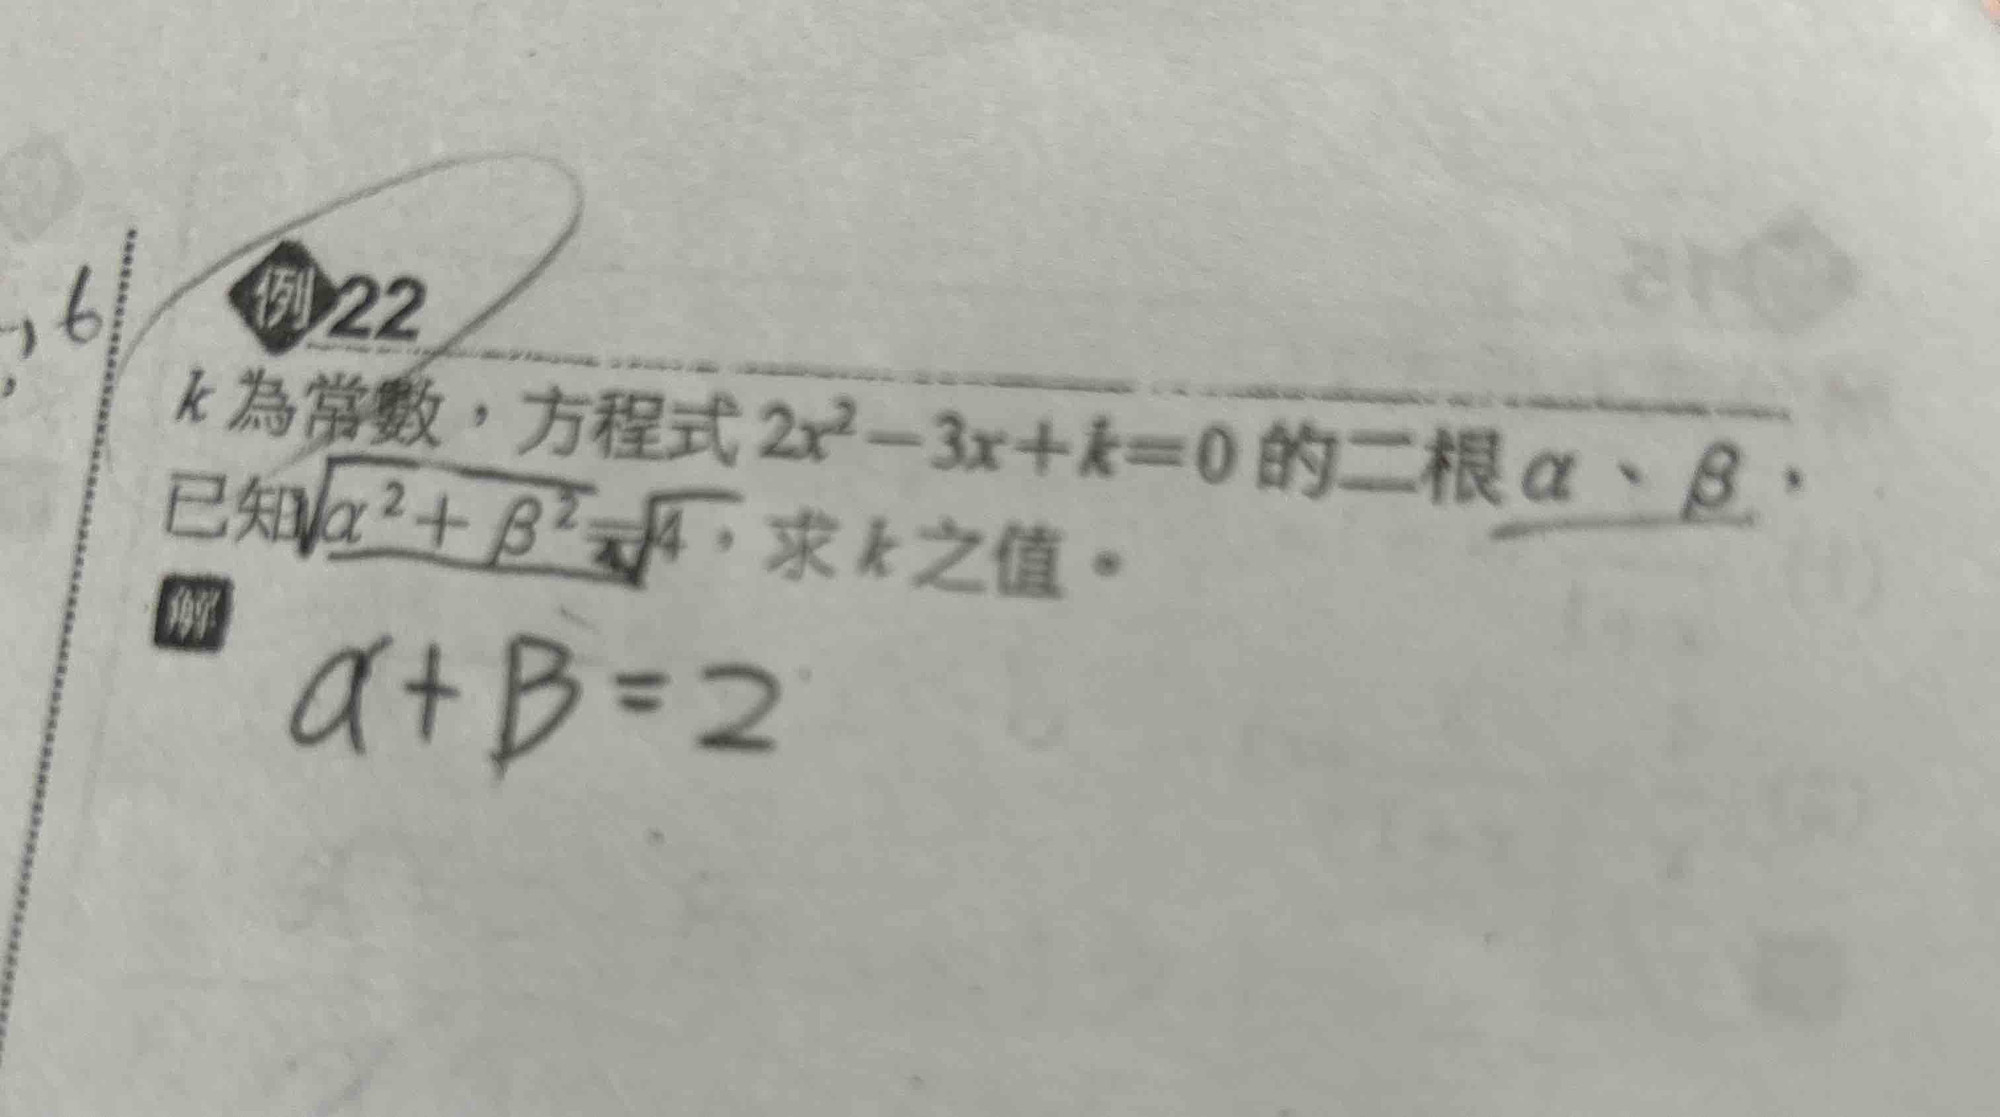 6
例22
k為常數，方程式 2x²－3x＋k＝0 的二根 α、β，
已知√α²＋β²＝√4，求 k 之值。
解
α+β=2